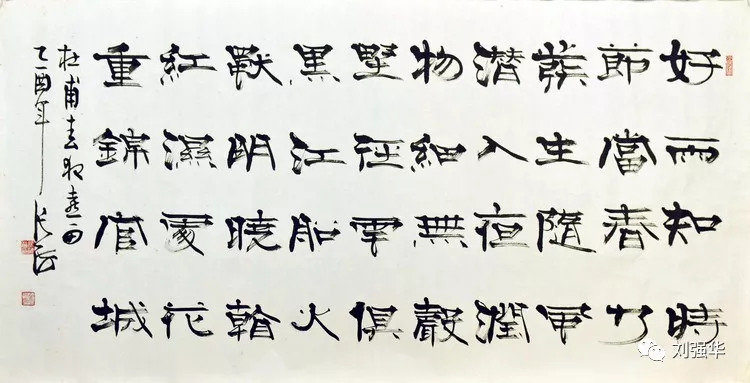 好雨知時
節當春乃
發生隨風
潛入夜潤
物細無聲
野徑雲俱
黑江船火
獨明曉看
紅濕處花
重錦官城
杜甫春夜喜雨
乙酉年
刘强华